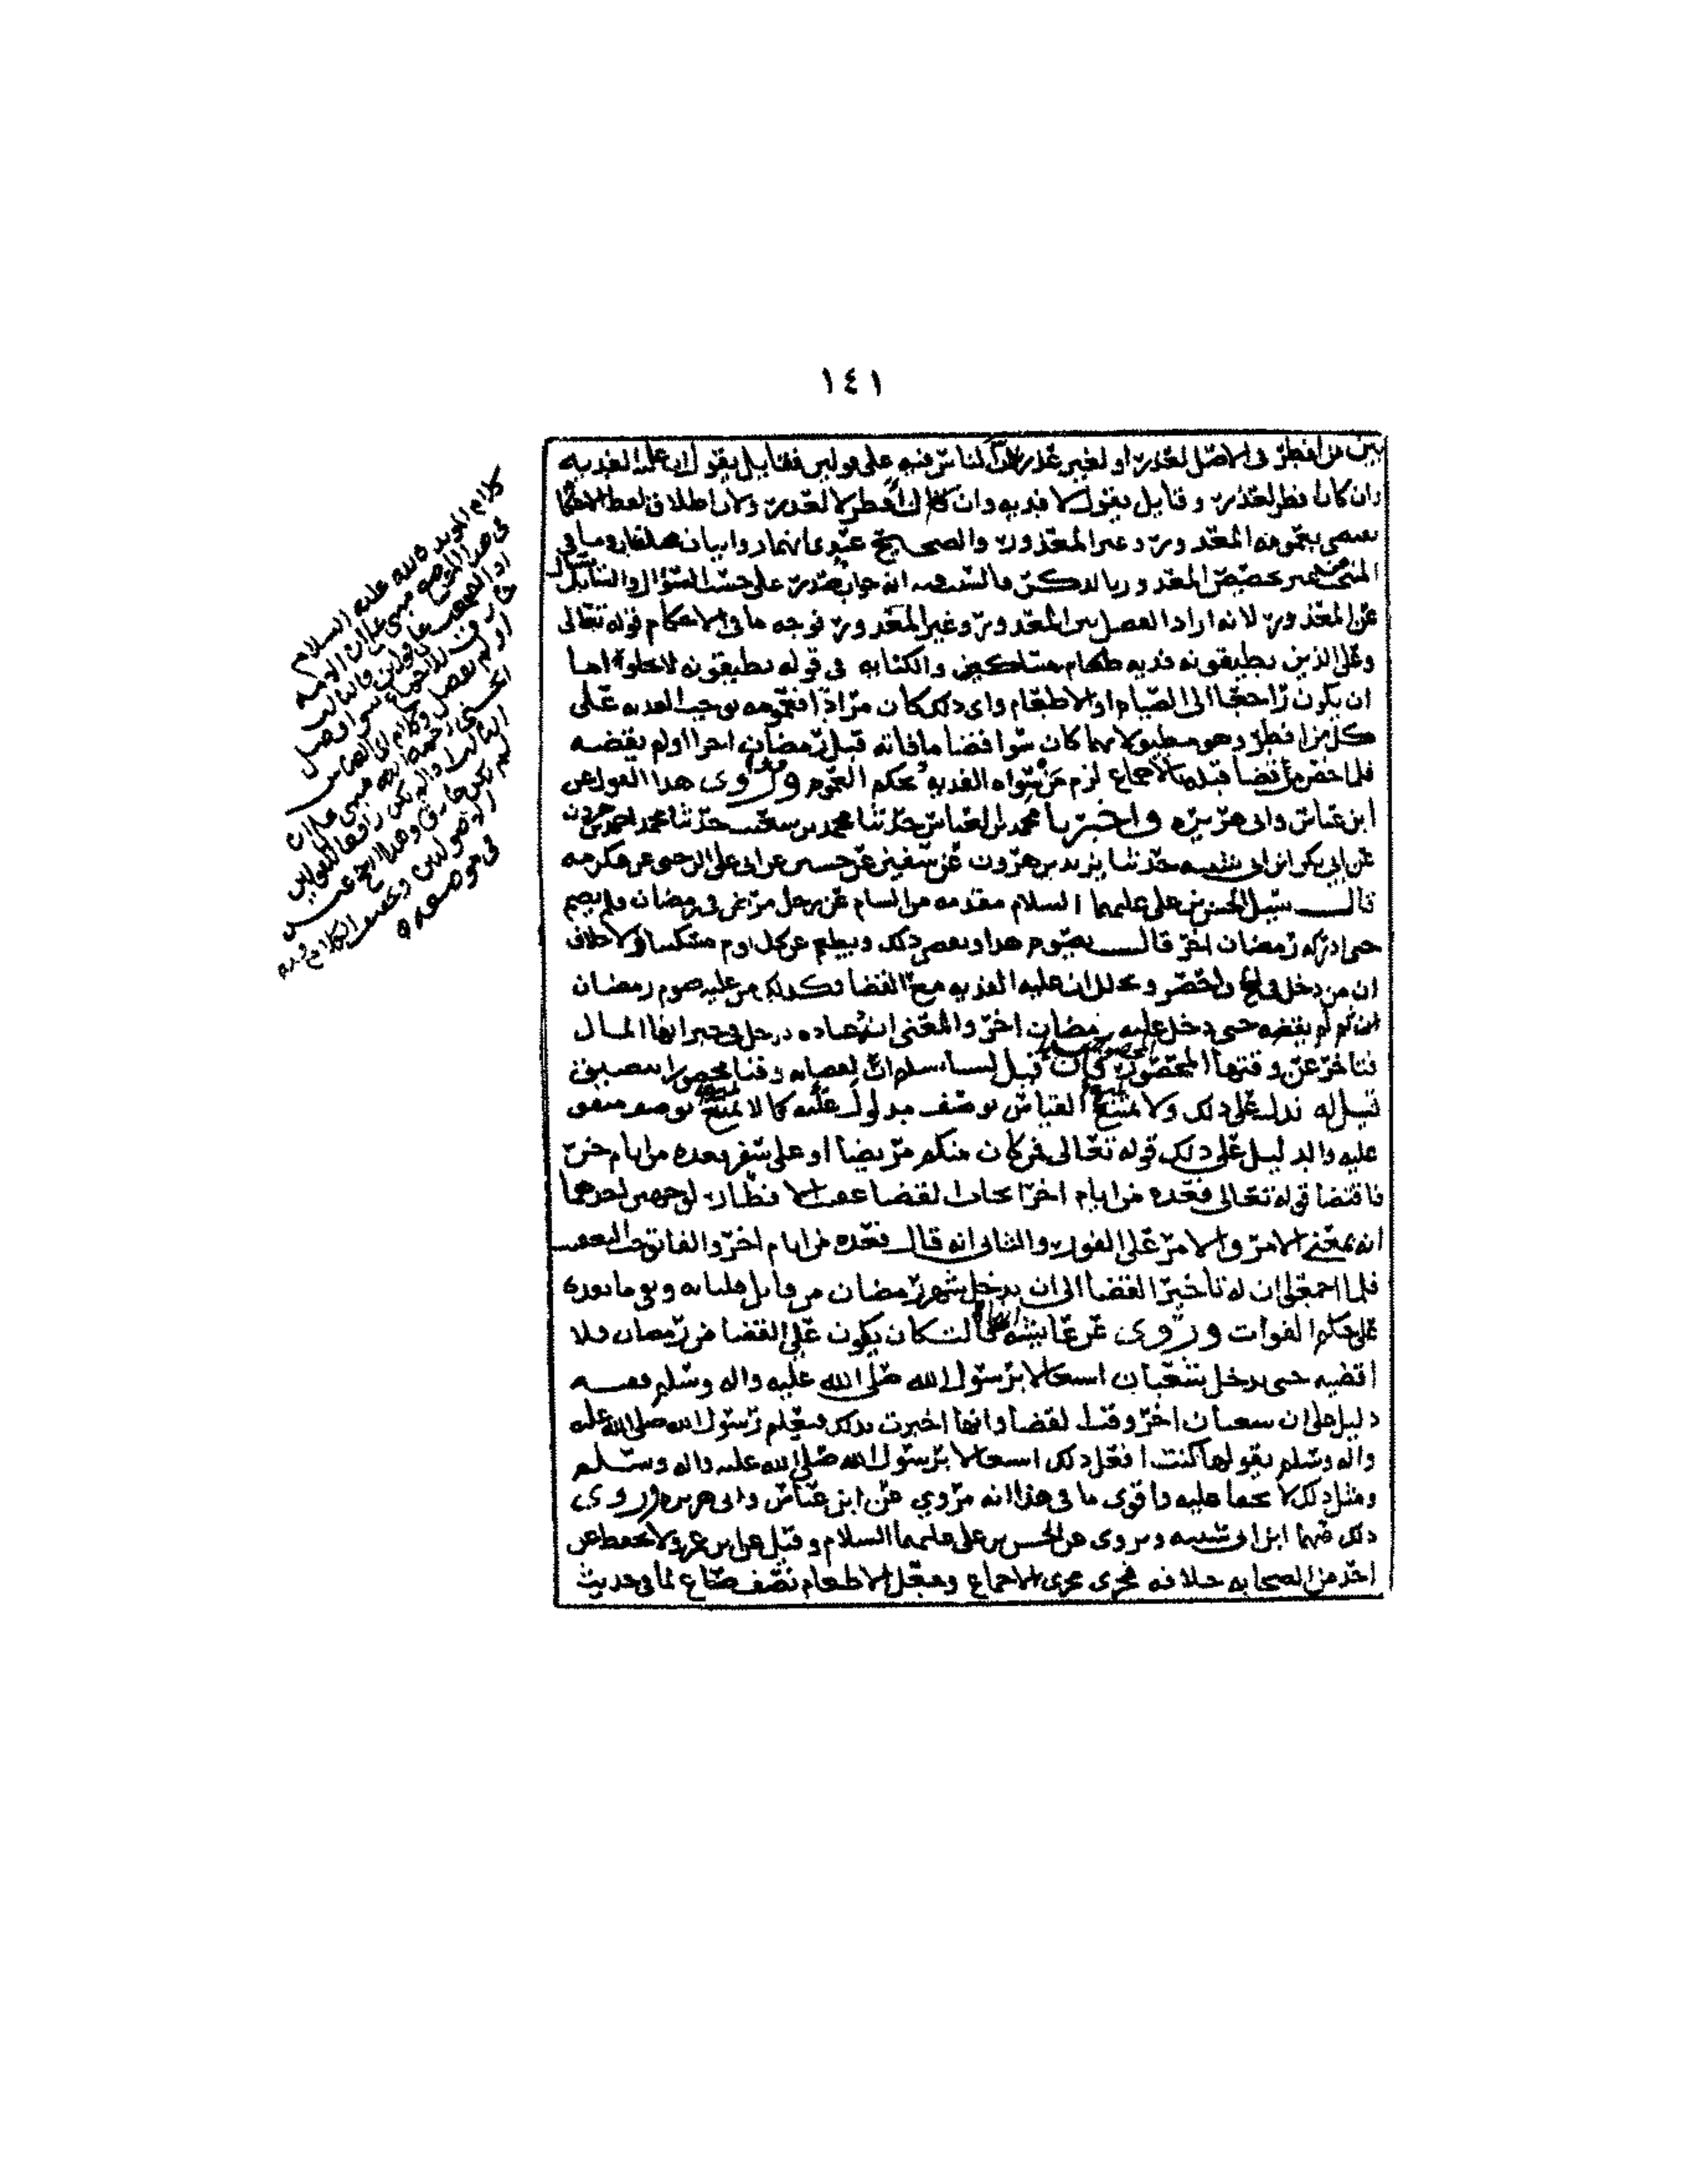 ١٤١
بين من افطر في الاصل لعذر او لغير عذر لان الناس فيه على قولين فقايل يقول ان عليه الفديه
وان كان افطر لعذر وقايل يقول لا فديه وان كان افطر لا لعذر ولان اطلاق لفظ الاحكام
يقتضي بعمومه المعذور وغير المعذور والصحيح عندي انهما روايتان وما في
المنتخب من تخصيص المعذور بالذكر انه جواب صدر على حسب السؤال والسائل سال
عن المعذور لا انه اراد الفصل بين المعذور وغير المعذور توجه ما في الاحكام قوله تعالى
وعلى الذين يطيقونه فديه طعام مساكين والكنايه في قوله يطيقونه لا تخلوا اما
ان يكون راجعا الى الصيام او الاطعام واي ذلك كان مرادا فعمومه يوجب الفديه على
كل من افطر وهو مطيق لايهما كان سوا قضا ما فاته قبل رمضان اخر او لم يقضه
فلما خص من قضا قبله بالاجماع لزم من سواه الفديه بحكم العموم وروى هذا القول عن
ابن عباس وابي هريره واخبرنا محمد بن العباس حدثنا محمد بن شعيب حدثنا محمد احمد بن هرون
عن ابي بكر ابن ابي شيبه حدثنا يزيد بن هرون عن سفين عن حسين عن ابي علي الرحبي عن عكرمه
قال سئل الحسن بن علي عليهما السلام مقدمه من الشام عن رجل مرض في رمضان فلم يصم
حتى ادركه رمضان اخر قال يصوم هذا ويقضي ذلك ويطعم عن كل يوم مسكينا ولا خلاف
ان من دخل في الحج واحصر وتحلل ان عليه الفديه مع القضا وكذلك من عليه صوم رمضان
ان لم يقضه حتى دخل عليه رمضان اخر والمعنى انها عباده دخل في جبرانها المال
فتاخر عن وقتها المحصور فان قيل لسنا نسلم ان لقضائه وقتا محصورا
قيل له ندل على ذلك ولا يمتنع القياس بوصف مدلول عليه كما لا يمتنع بوصف متفق
عليه والدليل على ذلك قوله تعالى فمن كان منكم مريضا او على سفر فعده من ايام اخر
فاقتضا قوله تعالى فعده من ايام اخر ايجاب القضا عقب الافطار لوجهين احدهما
انه بمعنى الامر والامر على الفور والثاني انه قال فعده من ايام اخر والفا توجب التعقيب
فلما اجمع على ان له تاخير القضا الى ان يدخل شهر رمضان من قابل قلنا به وبقي ما بعده
على حكم الفوات وروى عن عايشه انها قالت كان يكون علي القضا من رمضان فلا
اقضيه حتى يدخل شعبان اشتغالا برسول الله صلى الله عليه واله وسلم ففيه
دليل على ان شعبان اخر وقت القضا وانها اخبرت بذلك بعلم رسول الله صلى الله عليه
واله وسلم بقولها كنت افعل ذلك اشتغالا برسول الله صلى الله عليه واله وسلم
ومثل ذلك لا يخفا عليه واقوى ما في هذا انه مروي عن ابن عباس وابي هريره وروى
ذلك عنهما ابن ابي شيبه وروي عن الحسن بن علي عليهما السلام وقيل عن ابن عمر ولا يحفظ عن
احد من الصحابه خلافه فجرى مجرى الاجماع وجعل الاطعام نصف صاع لما في حديث
كلام المويد بالله عليه السلام
في هذا الموضع مبني على ان الامه
اذا اختلفت على قولين فالثالث
خارق للاجماع سوا فصل
او لم يفصل وكلام ابي العباس
الحسني رحمه الله مبني على ان
الثالث اذا لم يكن رافعا للقولين
لم يكن خارق وهذا
في موضعه